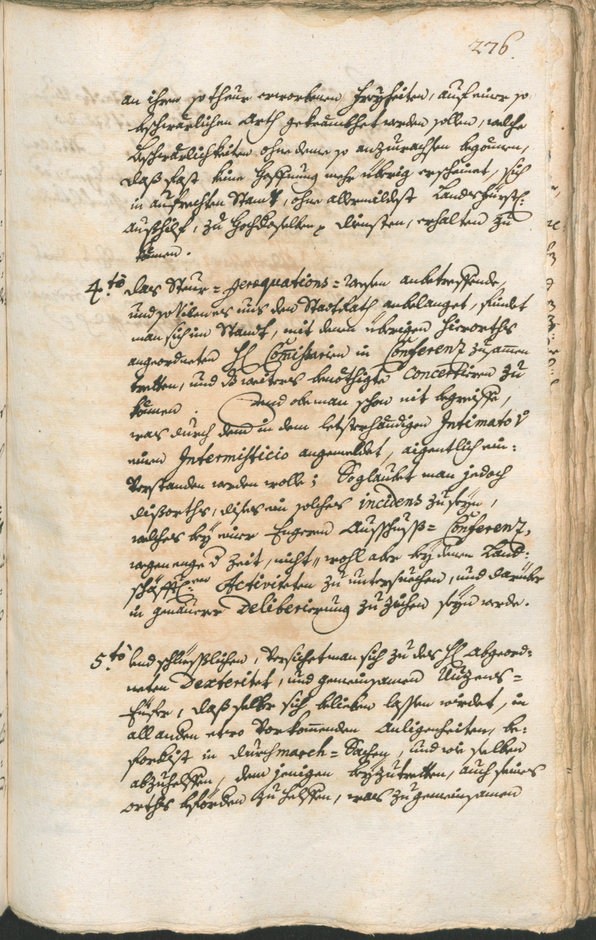 276.
an ihren so theur erworbenen freyheiten, auf einer so
beschwärlichen Arth gekränckhet werden sollen, welche
beschwärlichkeiten ohne deme so anzuwachsen begonnen,
daß fast keine Hoffnung mehr übrig erscheinet, sich
in aufrechten Standt, ohne allermildist Landsfürstl:
Aushilf, zu Hochdeselben diensten, erhalten zu
können.
4.to das Steur=Peraequations=Weesen anbetreffende,
und so vil an es uns den Stadtrath anbelanget, findet
man sich im Standt, mit denen übrigen hierorths
angeordneten H Commissarien in Conferenz zusammen
tretten, und weiters benöthigte concertieren zu
können. Und ob man schon nit begreiffe,
was durch denn in dem letsterhändigen Intimato
einen Intermisticio angemeldet, aigentlich ein=
verstanden werden wolle; So glaubet man jedoch
disorths, dises ein solches incidens zu seyn,
welches bey einer Engeren Ausschuss=Conferenz,
wegen enge der Zeit, nicht, wohl aber bey denen Land=
schäfftl:en Activiteten zu untersuchen, und darüber
in genauere Deliberierung zu ziehen seyn werde.
5.to Und schliesslichen, versichet man sich zu des H Abgeord=
neten Dexteritet, und gemeinsamen Nuzens=
Eyfer, daß selbe sich belieben lassen werdet, in
all anden etwo vorkommenden Anligenheiten, be=
forderist in durchmarch=Sachen, und wie selben
abzuhelffen, dem jenigen beyzutretten, auch seines
orths beförderen zu helffen, was zu gemeinsamen